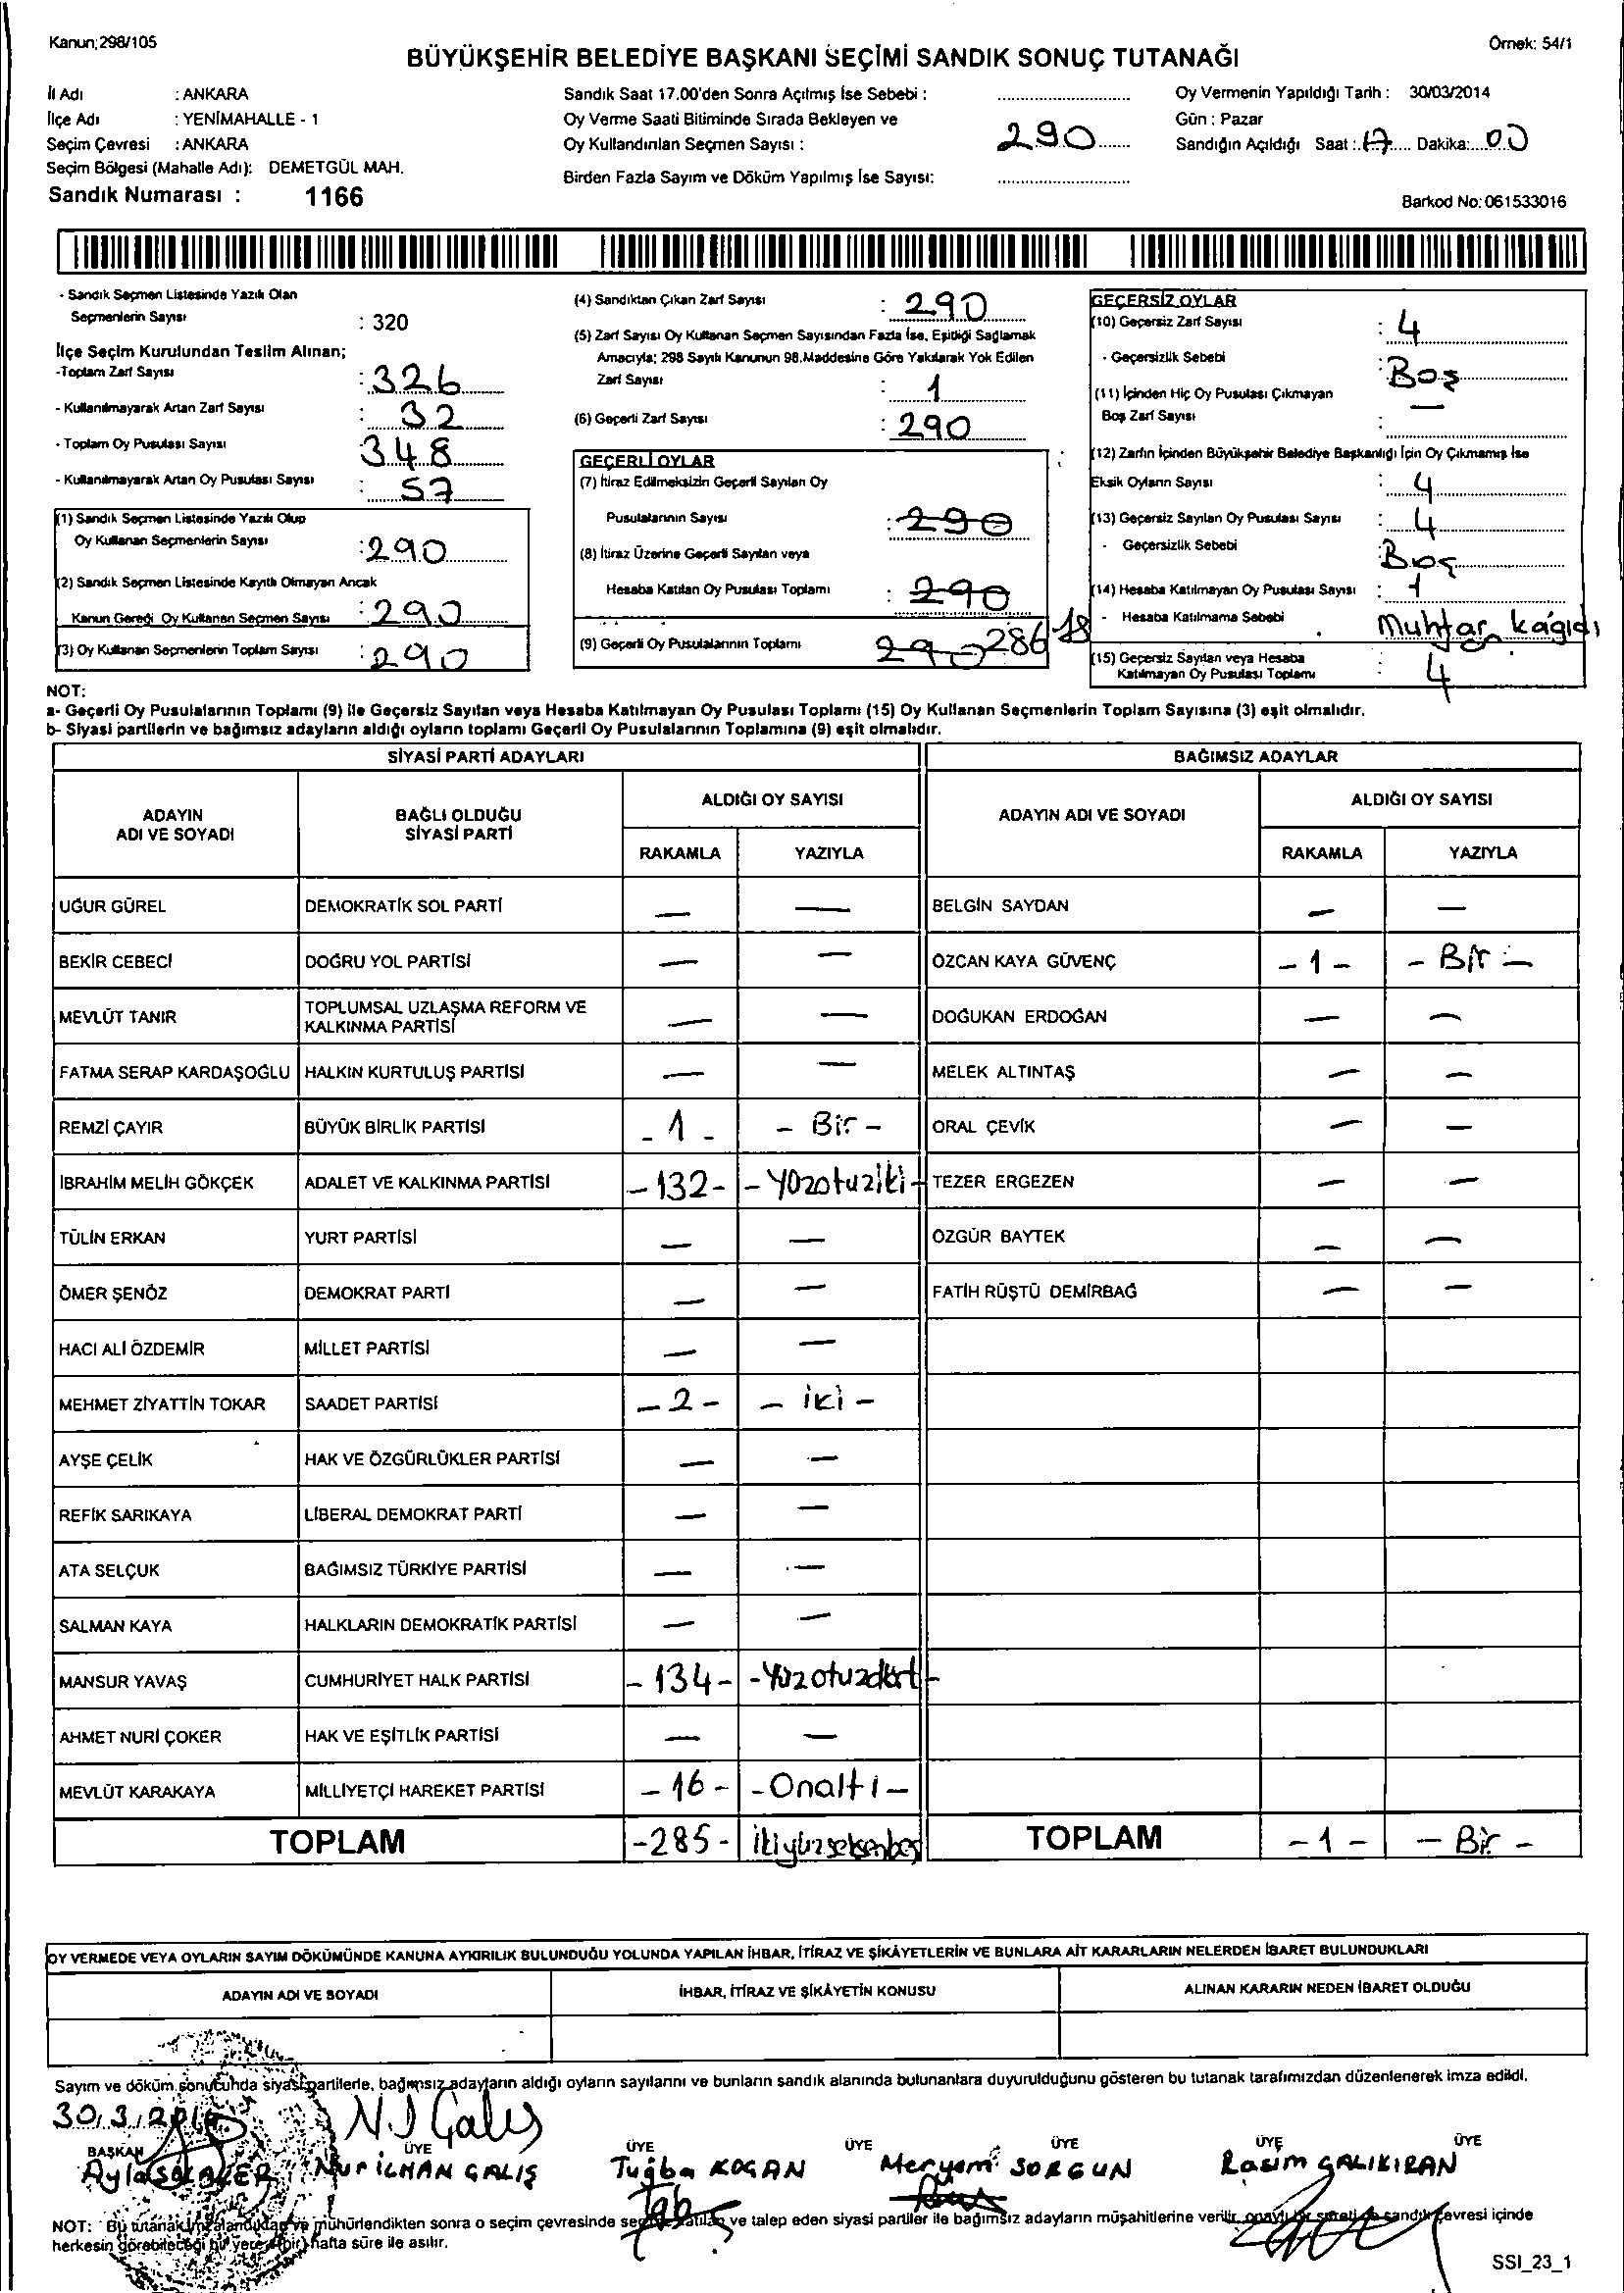 Kanun;298/105
Örnek: 54/1
BÜYÜKŞEHİR BELEDİYE BAŞKANI SEÇİMİ SANDIK SONUÇ TUTANAĞI
İl Adı : ANKARA
İlçe Adı : YENİMAHALLE - 1
Seçim Çevresi : ANKARA
Seçim Bölgesi (Mahalle Adı): DEMETGÜL MAH.
Sandık Numarası : 1166
Sandık Saat 17.00'den Sonra Açılmış İse Sebebi :
Oy Verme Saati Bitiminde Sırada Bekleyen ve
Oy Kullandırılan Seçmen Sayısı : 290
Birden Fazla Sayım ve Döküm Yapılmış İse Sayısı:
Oy Vermenin Yapıldığı Tarih : 30/03/2014
Gün : Pazar
Sandığın Açıldığı Saat : 17 Dakika: 00
Barkod No: 061533016
- Sandık Seçmen Listesinde Yazılı Olan
Seçmenlerin Sayısı : 320
İlçe Seçim Kurulundan Teslim Alınan;
-Toplam Zarf Sayısı : 326
- Kullanılmayarak Artan Zarf Sayısı : 32
- Toplam Oy Pusulası Sayısı 348
- Kullanılmayarak Artan Oy Pusulası Sayısı : 57
(1) Sandık Seçmen Listesinde Yazılı Olup
Oy Kullanan Seçmenlerin Sayısı : 290
(2) Sandık Seçmen Listesinde Kayıtlı Olmayan Ancak
Kanun Gereği Oy Kullanan Seçmen Sayısı : 290
(3) Oy Kullanan Seçmenlerin Toplam Sayısı : 290
(4) Sandıktan Çıkan Zarf Sayısı : 290
(5) Zarf Sayısı Oy Kullanan Seçmen Sayısından Fazla İse, Eşitliği Sağlamak
Amacıyla; 298 Sayılı Kanunun 98.Maddesine Göre Yakılarak Yok Edilen
Zarf Sayısı : 1
(6) Geçerli Zarf Sayısı : 290
GEÇERLİ OYLAR
(7) İtiraz Edilmeksizin Geçerli Sayılan Oy
Pusulalarının Sayısı : 290
(8) İtiraz Üzerine Geçerli Sayılan veya
Hesaba Katılan Oy Pusulası Toplamı : 290
(9) Geçerli Oy Pusulalarının Toplamı 290 286
GEÇERSİZ OYLAR
(10) Geçersiz Zarf Sayısı : 4
- Geçersizlik Sebebi : Boş
(11) İçinden Hiç Oy Pusulası Çıkmayan
Boş Zarf Sayısı : —
(12) Zarfın İçinden Büyükşehir Belediye Başkanlığı İçin Oy Çıkmamış İse
Eksik Oyların Sayısı : 4
(13) Geçersiz Sayılan Oy Pusulası Sayısı : 4
- Geçersizlik Sebebi Boş
(14) Hesaba Katılmayan Oy Pusulası Sayısı : 1
- Hesaba Katılmama Sebebi Muhtar kağıdı
(15) Geçersiz Sayılan veya Hesaba
Katılmayan Oy Pusulası Toplamı : 4
NOT:
a- Geçerli Oy Pusulalarının Toplamı (9) ile Geçersiz Sayılan veya Hesaba Katılmayan Oy Pusulası Toplamı (15) Oy Kullanan Seçmenlerin Toplam Sayısına (3) eşit olmalıdır.
b- Siyasi partilerin ve bağımsız adayların aldığı oyların toplamı Geçerli Oy Pusulalarının Toplamına (9) eşit olmalıdır.
SİYASİ PARTİ ADAYLARI
ADAYIN ADI VE SOYADI
BAĞLI OLDUĞU SİYASİ PARTİ
ALDIĞI OY SAYISI
RAKAMLA YAZIYLA
UĞUR GÜREL DEMOKRATİK SOL PARTİ — —
BEKİR CEBECİ DOĞRU YOL PARTİSİ — —
MEVLÜT TANIR TOPLUMSAL UZLAŞMA REFORM VE KALKINMA PARTİSİ — —
FATMA SERAP KARDAŞOĞLU HALKIN KURTULUŞ PARTİSİ — —
REMZİ ÇAYIR BÜYÜK BİRLİK PARTİSİ - 1 - - Bir -
İBRAHİM MELİH GÖKÇEK ADALET VE KALKINMA PARTİSİ - 132 - - Yüzotuziki -
TÜLİN ERKAN YURT PARTİSİ — —
ÖMER ŞENÖZ DEMOKRAT PARTİ — —
HACI ALİ ÖZDEMİR MİLLET PARTİSİ — —
MEHMET ZİYATTİN TOKAR SAADET PARTİSİ - 2 - - iki -
AYŞE ÇELİK HAK VE ÖZGÜRLÜKLER PARTİSİ — —
REFİK SARIKAYA LİBERAL DEMOKRAT PARTİ — —
ATA SELÇUK BAĞIMSIZ TÜRKİYE PARTİSİ — —
SALMAN KAYA HALKLARIN DEMOKRATİK PARTİSİ — —
MANSUR YAVAŞ CUMHURİYET HALK PARTİSİ - 134 - - Yüzotuzdört -
AHMET NURİ ÇOKER HAK VE EŞİTLİK PARTİSİ — —
MEVLÜT KARAKAYA MİLLİYETÇİ HAREKET PARTİSİ - 16 - - Onaltı -
TOPLAM - 285 - ikiyüzseksenbeş
BAĞIMSIZ ADAYLAR
ADAYIN ADI VE SOYADI
ALDIĞI OY SAYISI
RAKAMLA YAZIYLA
BELGİN SAYDAN — —
ÖZCAN KAYA GÜVENÇ - 1 - - Bir -
DOĞUKAN ERDOĞAN — —
MELEK ALTINTAŞ — —
ORAL ÇEVİK — —
TEZER ERGEZEN — —
ÖZGÜR BAYTEK — —
FATİH RÜŞTÜ DEMİRBAĞ — —
TOPLAM - 1 - - Bir -
OY VERMEDE VEYA OYLARIN SAYIM DÖKÜMÜNDE KANUNA AYKIRILIK BULUNDUĞU YOLUNDA YAPILAN İHBAR, İTİRAZ VE ŞİKÂYETLERİN VE BUNLARA AİT KARARLARIN NELERDEN İBARET BULUNDUKLARI
ADAYIN ADI VE SOYADI
İHBAR, İTİRAZ VE ŞİKÂYETİN KONUSU
ALINAN KARARIN NEDEN İBARET OLDUĞU
Sayım ve döküm sonucunda siyasi partilerle, bağımsız adayların aldığı oyların sayılarını ve bunların sandık alanında bulunanlara duyurulduğunu gösteren bu tutanak tarafımızdan düzenlenerek imza edildi.
30.3.2014
N.İ Çalış
BAŞKAN ÜYE ÜYE ÜYE ÜYE ÜYE ÜYE
Ayla Nur İLHAN ÇALIŞ Tuğba KOÇAN Meryem SORGUN Rasim ÇALIKIRAN
NOT: Bu tutanak imzalandıktan ve mühürlendikten sonra o seçim çevresinde seçime katılan ve talep eden siyasi partiler ile bağımsız adayların müşahitlerine verilir, onaylı bir sureti de sandık çevresi içinde
herkesin görebileceği bir yere (bir) hafta süre ile asılır.
SSI_23_1